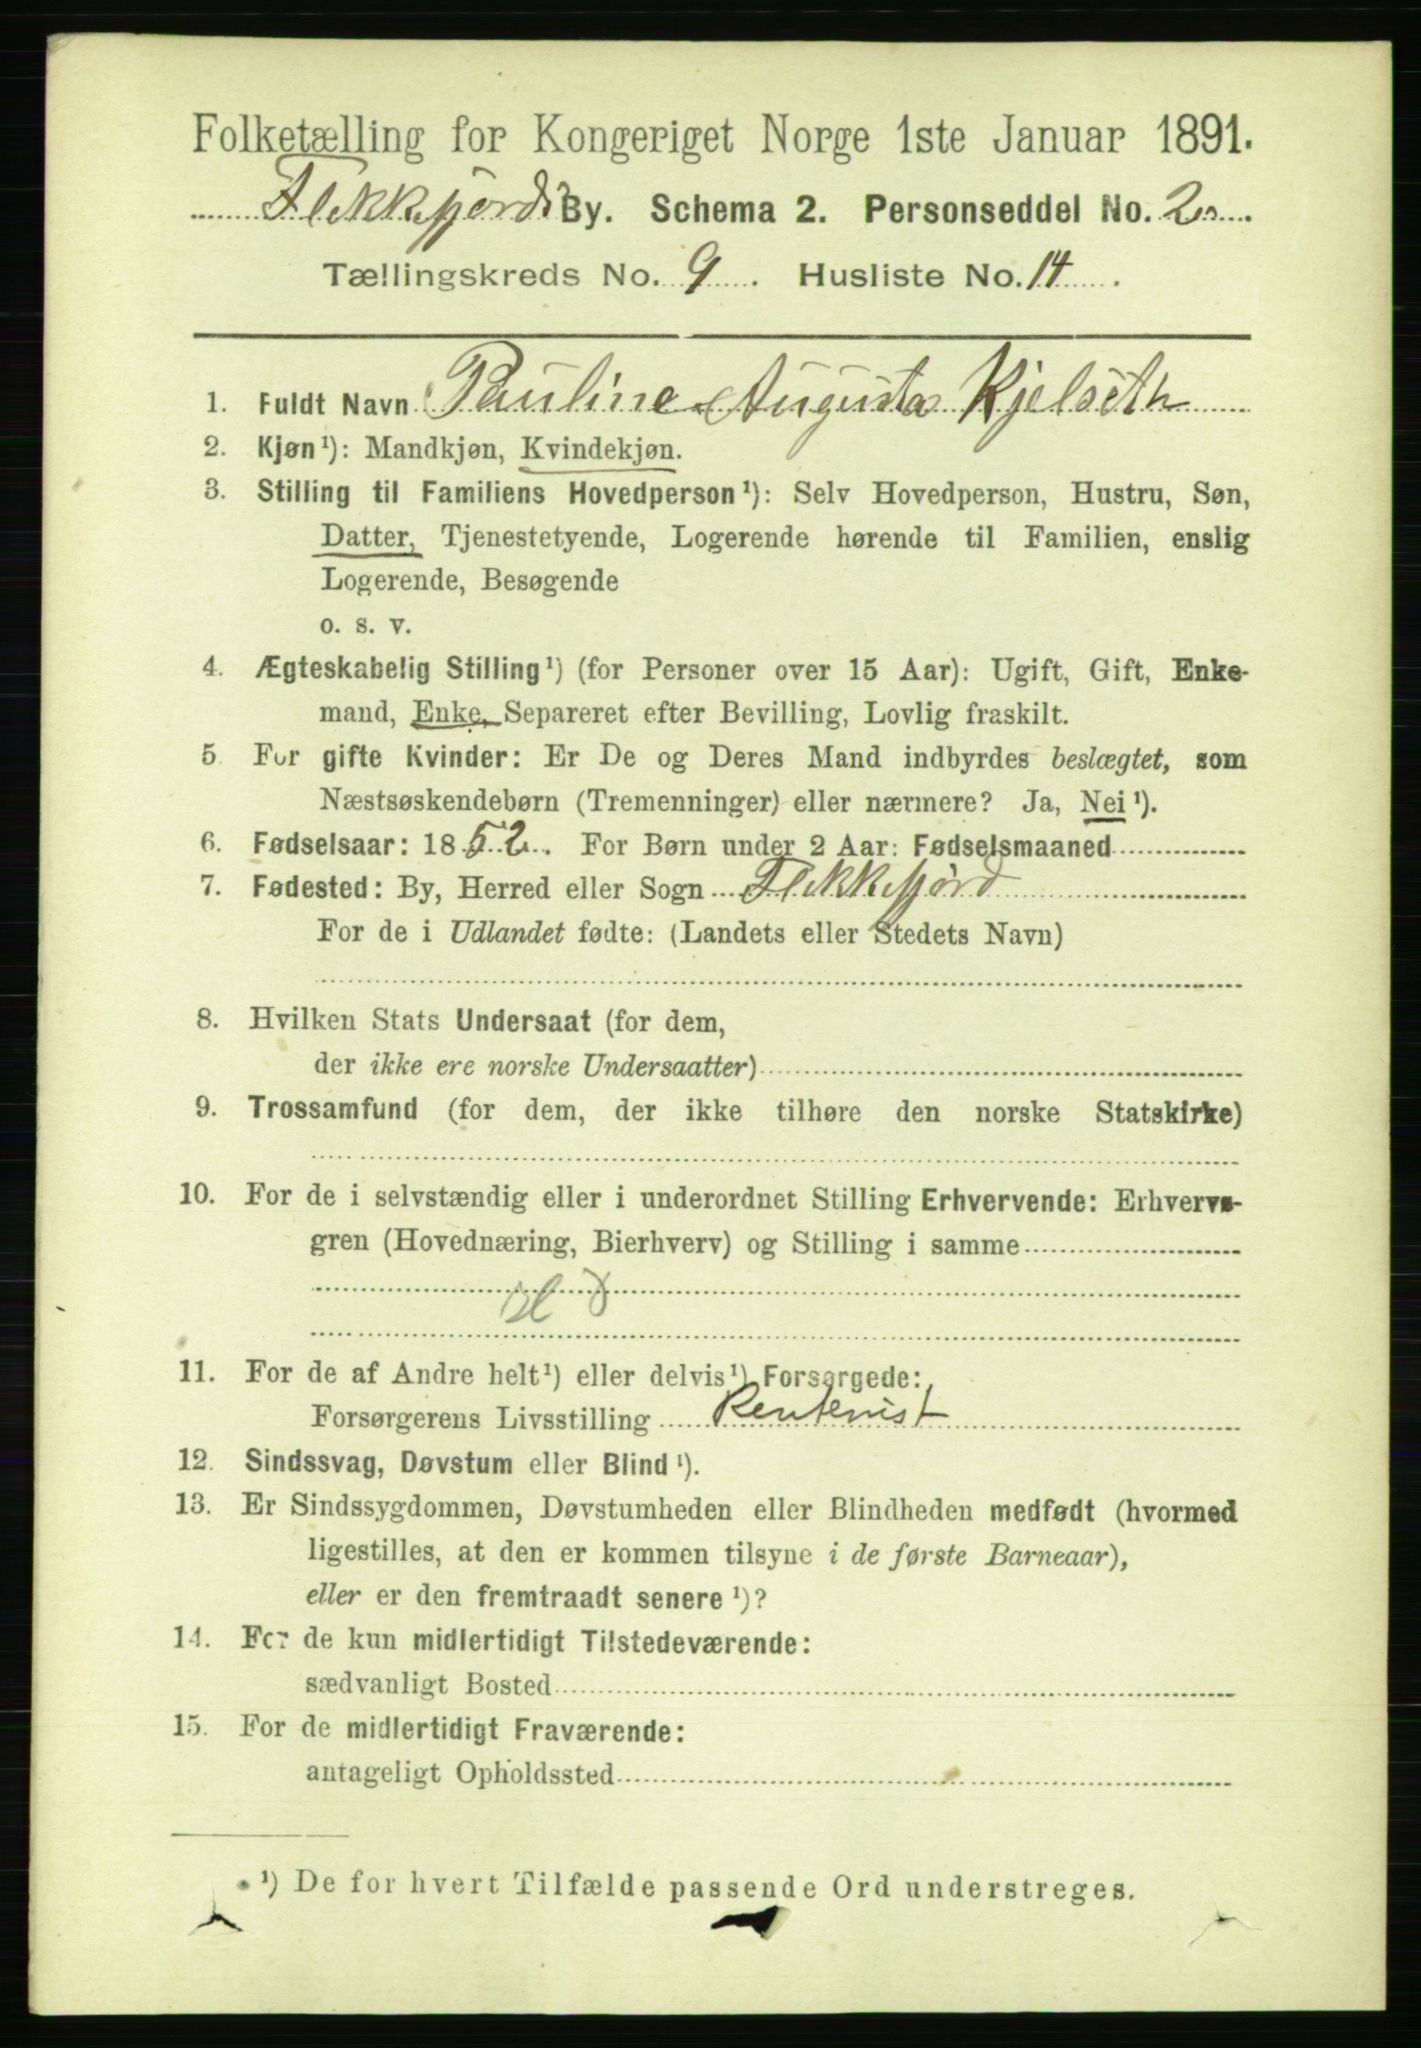 Folketælling for Kongeriget Norge 1ste Januar 1891.
Flekkefjords By. Schema 2. Personseddel No. 2
Tællingskreds No. 9. Husliste No. 14.
1. Fuldt Navn Pauline Augusta Kjelseth
2. Kjøn¹): Mandkjøn, Kvindekjøn.
3. Stilling til Familiens Hovedperson¹): Selv Hovedperson, Hustru, Søn,
Datter, Tjenestetyende, Logerende hørende til Familien, enslig
Logerende, Besøgende
o. s. v.
4. Ægteskabelig Stilling¹) (for Personer over 15 Aar): Ugift, Gift, Enke-
mand, Enke, Separeret efter Bevilling, Lovlig fraskilt.
5. For gifte Kvinder: Er De og Deres Mand indbyrdes beslægtet, som
Næstsøskendebørn (Tremenninger) eller nærmere? Ja, Nei¹).
6. Fødselsaar: 1852. For Børn under 2 Aar: Fødselsmaaned
7. Fødested: By, Herred eller Sogn Flekkefjord
For de i Udlandet fødte: (Landets eller Stedets Navn)
8. Hvilken Stats Undersaat (for dem,
der ikke ere norske Undersaatter)
9. Trossamfund (for dem, der ikke tilhøre den norske Statskirke)
10. For de i selvstændig eller i underordnet Stilling Erhvervende: Erhvervs-
gren (Hovednæring, Bierhverv) og Stilling i samme
11. For de af Andre helt¹) eller delvis¹) Forsørgede:
Forsørgerens Livsstilling Rentenist
12. Sindssvag, Døvstum eller Blind¹).
13. Er Sindssygdommen, Døvstumheden eller Blindheden medfødt (hvormed
ligestilles, at den er kommen tilsyne i de første Barneaar),
eller er den fremtraadt senere¹)?
14. For de kun midlertidigt Tilstedeværende:
sædvanligt Bosted
15. For de midlertidigt Fraværende:
antageligt Opholdssted
¹) De for hvert Tilfælde passende Ord understreges.